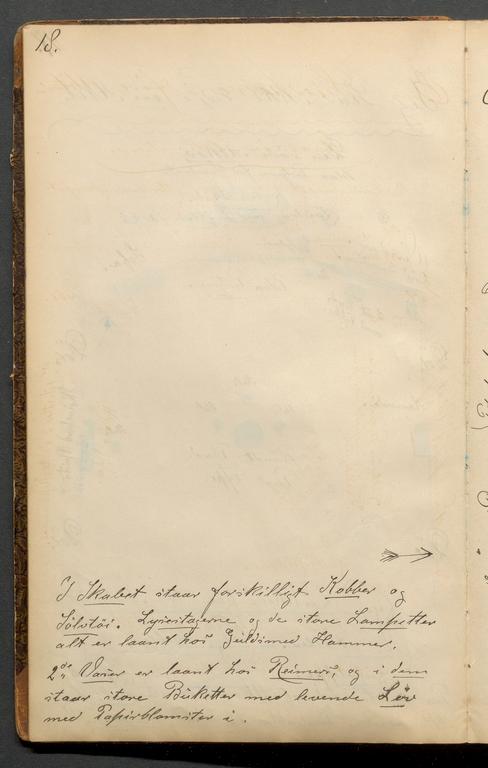 18.
I Skabet staar forskilligt Kobber og
Sölvtöi. Lysestagerne og de store Lampetter
alt er laant hos Guldsmed Hammer.
2de Vaser er laant hos Reimers, og i dem
staar store Buketter med levende Löv
med Papirblomster i.